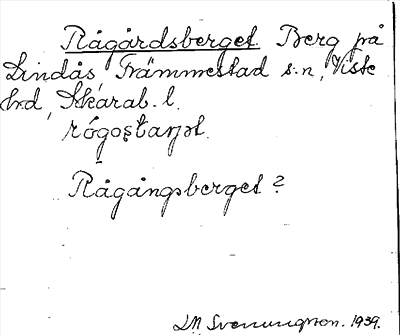 Rågårdsberget. Berg på
Lindås, Främmestad s:n, Viste
hd, Skarab. l.
Rågångsberget?
Svenungsson. 1939.